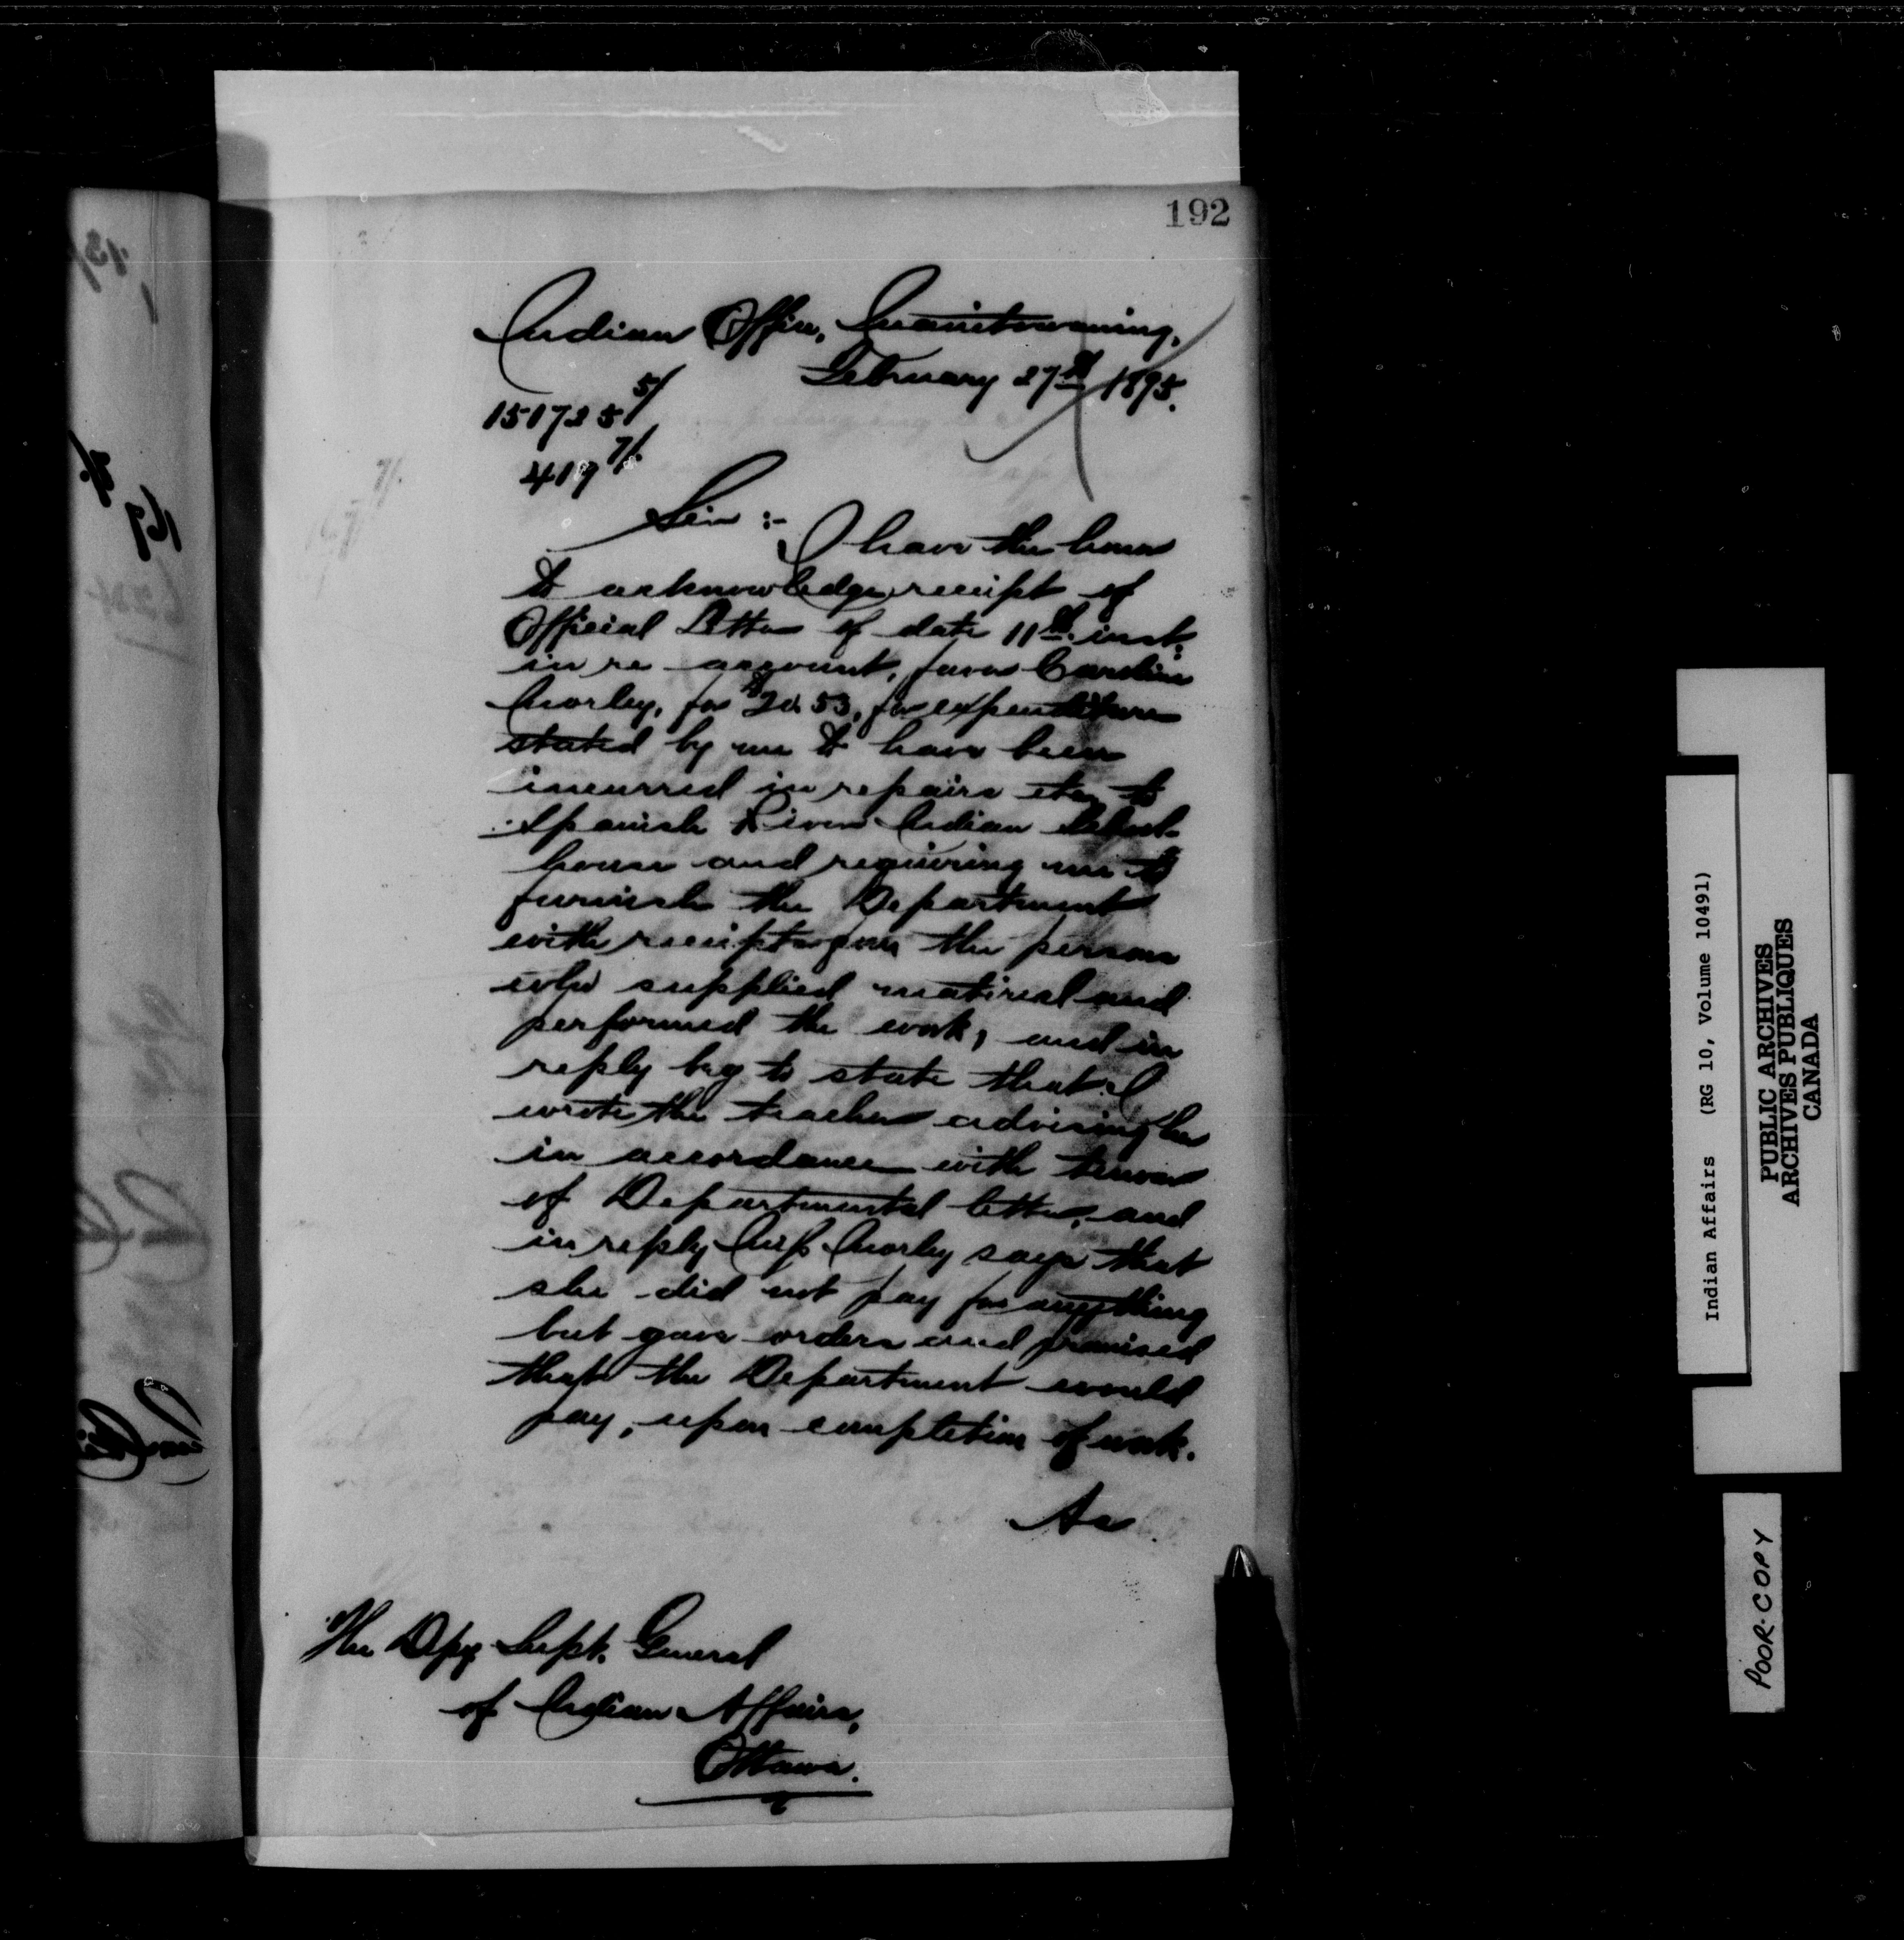 192
Indian Office, Manitowaning,
February 27th 1895.
151725 5/
419 7/.
Sir :-
I have the honor
to acknowledge receipt of
Official Letter of date 11th inst:
in re account, favor Caroline
Morley, for $20.53, for expenditure
stated by me to have been
incurred in repairs etc, to
Spanish River Indian School-
house and requiring me to
furnish the Department
with receipts from the persons
who supplied material and
performed the work, and in
reply beg to state that I
wrote the teacher advising her
in accordance with tenor
of Departmental letter, and
in reply Miss Morley says that
she did not pay for anything
but gave orders and promised
that the Department would
pay, upon completion of work.
As
The Dpy Supt. General
of Indian Affairs,
Ottawa.
Indian Affairs (RG 10, Volume 10491)
PUBLIC ARCHIVES
ARCHIVES PUBLIQUES
CANADA
POOR-COPY